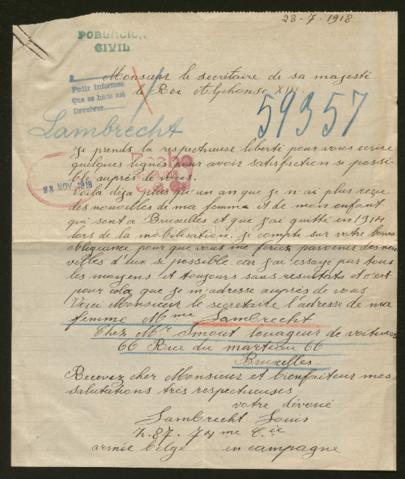 23-7-1918
POBLACION
CIVIL
Monsieur le secrétaire de sa majesté
le Roi Alphonse XIII
Pedir Informes
Que se haria asi
Devolver
59357
Lambrecht
Je prends la respectueuse liberté pour vous écrire
quelques lignes pour avoir satisfaction si possi
ble auprès de vous.
Voilà déja plus qu'un an que je n'ai plus reçu
des nouvelles de ma femme et de mon enfant
22 NOV. 1918
qui sont a Bruxelles et que j'ai quitté en 1914
lors de la mobilisation, je compte sur votre bonne
obligeance pour que vous me feriez parvenir des nou
velles d'eux si possible car j'ai essayé par tous
les moyens et toujours sans resultats et c'est
pour cela que je m'adresse auprès de vous
Voici Monsieur le secretaire l'adresse de ma
femme Mme Lambrecht
Chez Mr Smout louageur de voitures
66 Rue du marteau 66
Bruxelles
Recevez cher Monsieur et bienfaiteur mes
salutations très respectueuses
votre dévoué
Lambrecht Louis
Z.87. 7 me Cie
armée belge en campagne